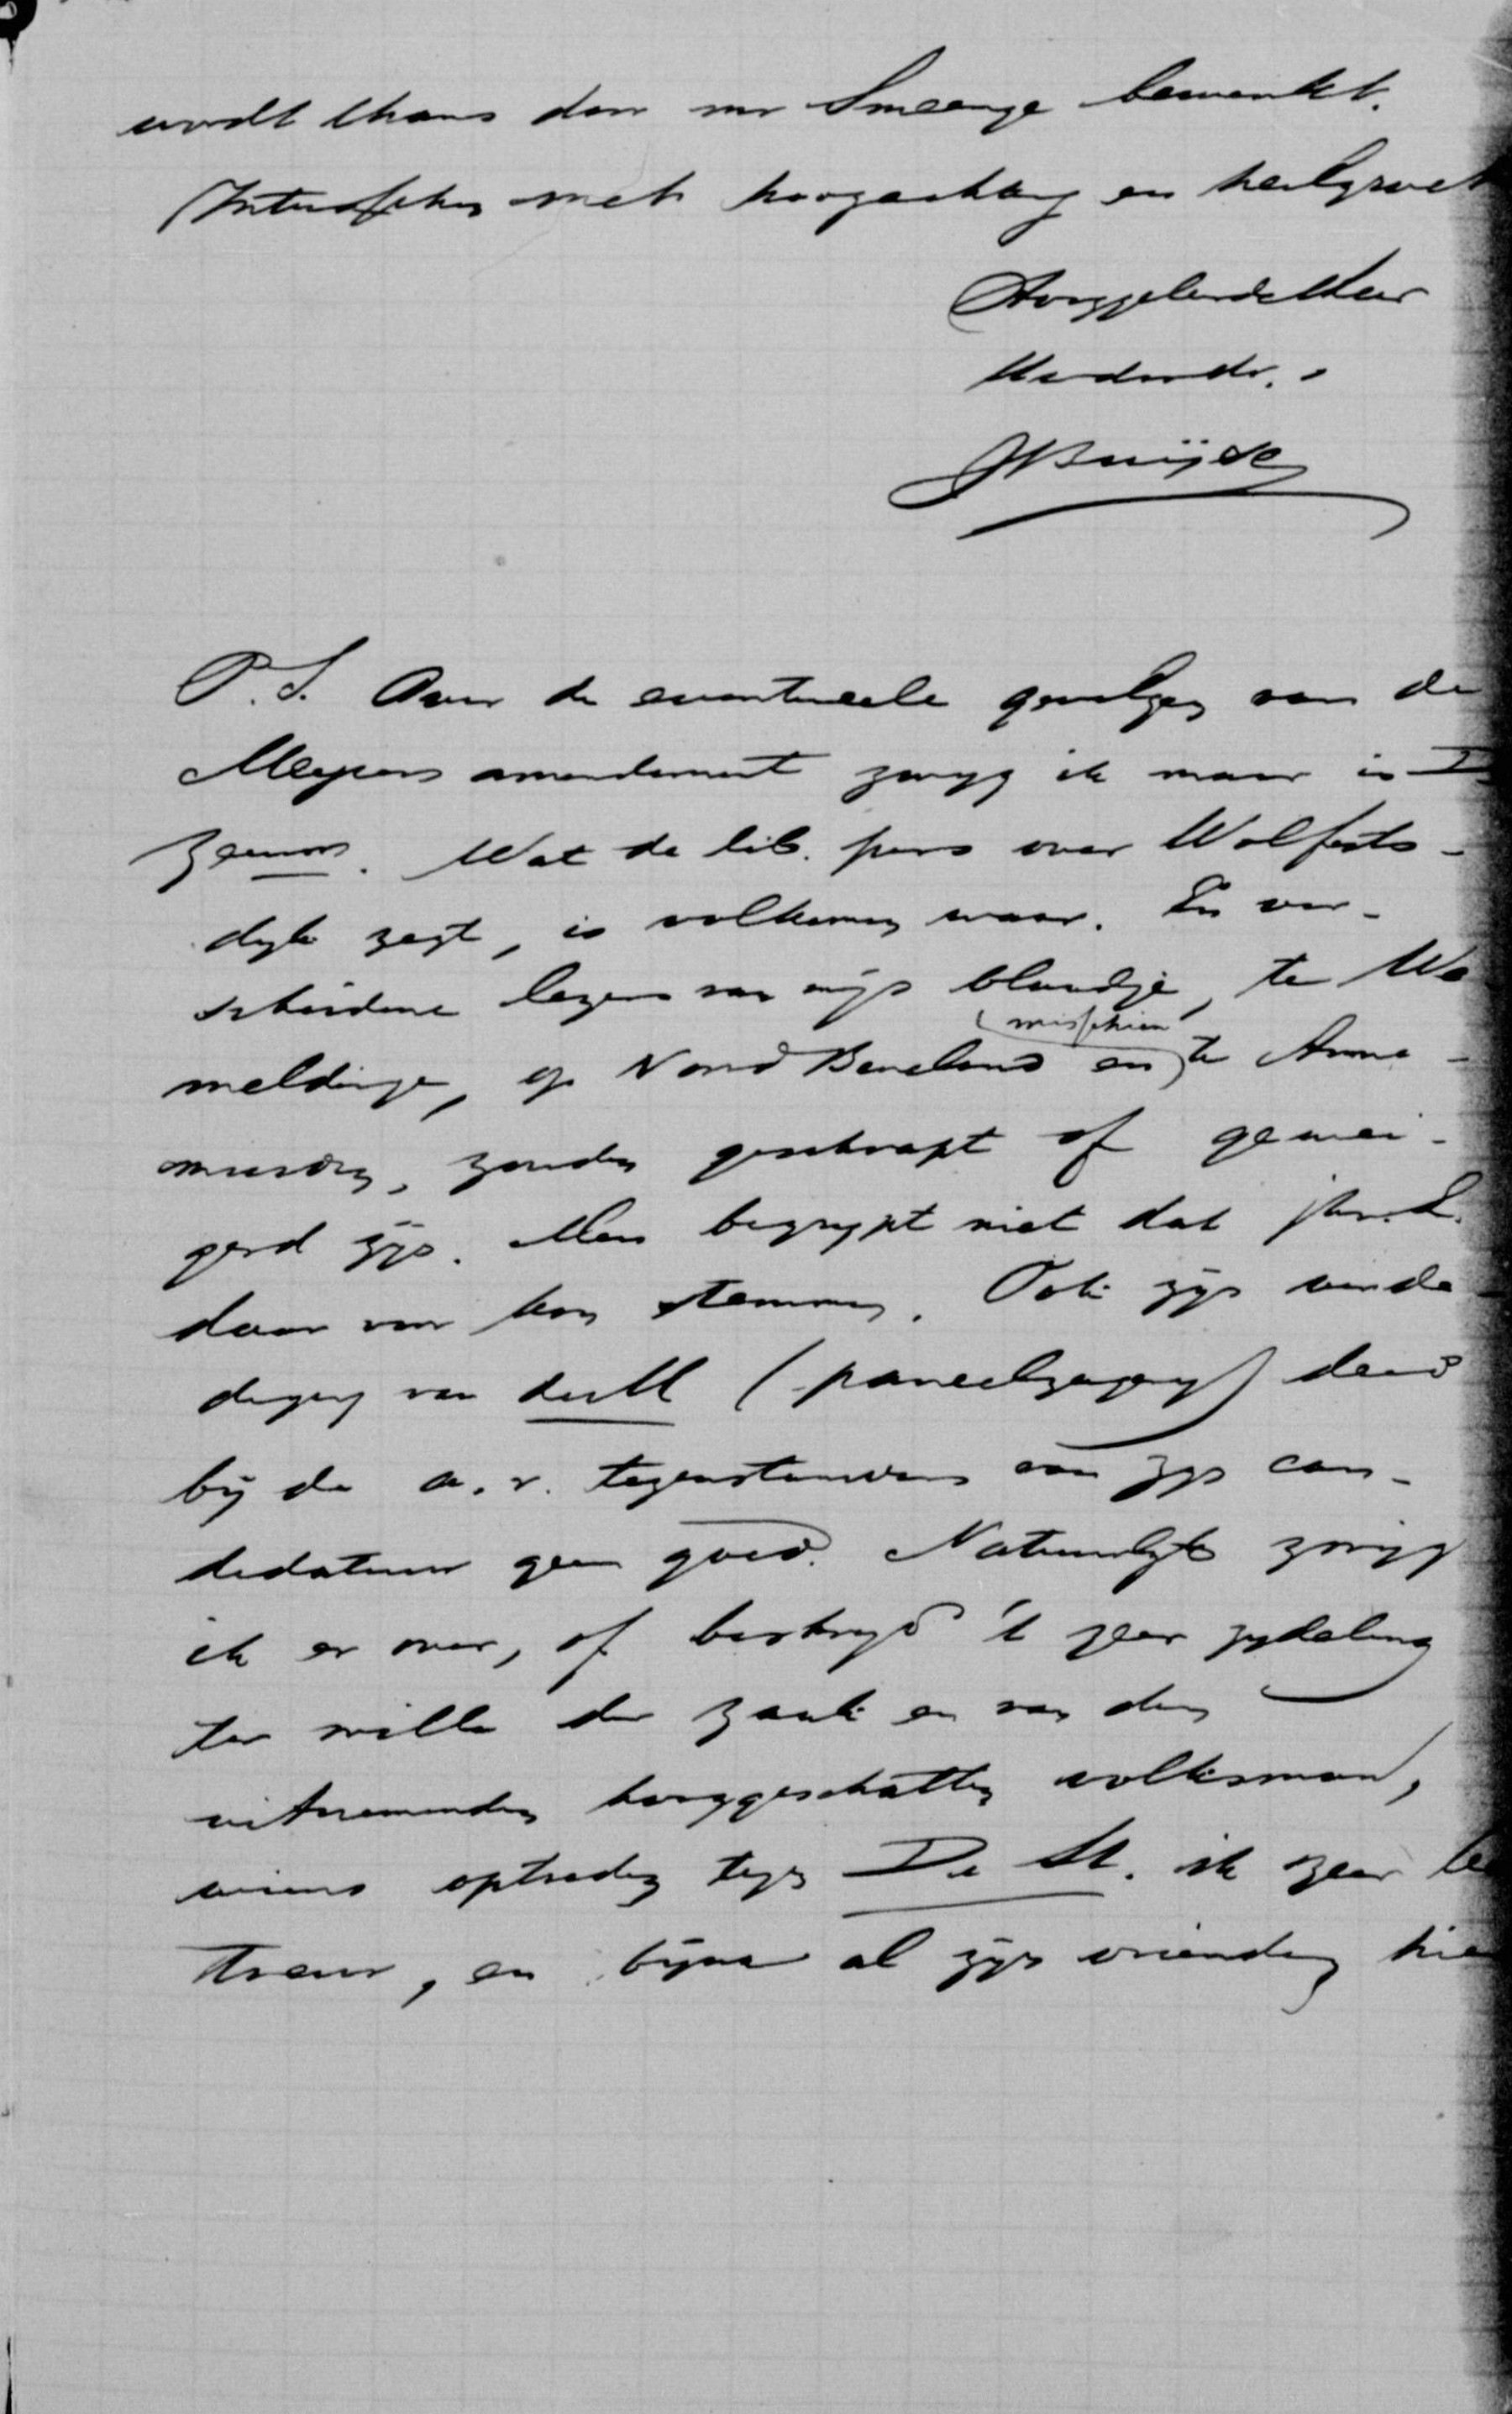 wordt thans door mr Smeenge bewerkt.
Intusschen met hoogachting en heilgroet
Hooggeleerde Heer
Uw dw dr.,
P.S. Over de eventueele gevolgen van de
Meyers amendement zwyg ik maar in D
Zeeuw. Wat de lib. pers over Wolfaarts-
dyk zegt, is volkomen waar. En ver-
scheidene lezers van mijn blaadje, te We
meldinge, op Noord Beveland en (misschien) te Anna-
, zouden geschrapt of gewei-
gerd zijn. Men begrypt niet dat jhr. d. S.
daar voor kon stemmen. Ook zijn verde
diging van (paneelzagery) deed
bij de a.r. tegenstanders van zyn can-
didatuur geen goed. Natuurlyk zwijg
ik er over, of bestryd 't zeer zydeling
ter wille der zaak en van den
uitnemenden hooggeschatten volksman,
wiens optreden tegen De St. ik zeer be
treur, en bijna al zijn vrienden hie